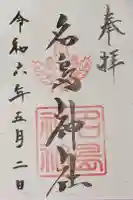 奉拝
名島神社
令和六年五月二日